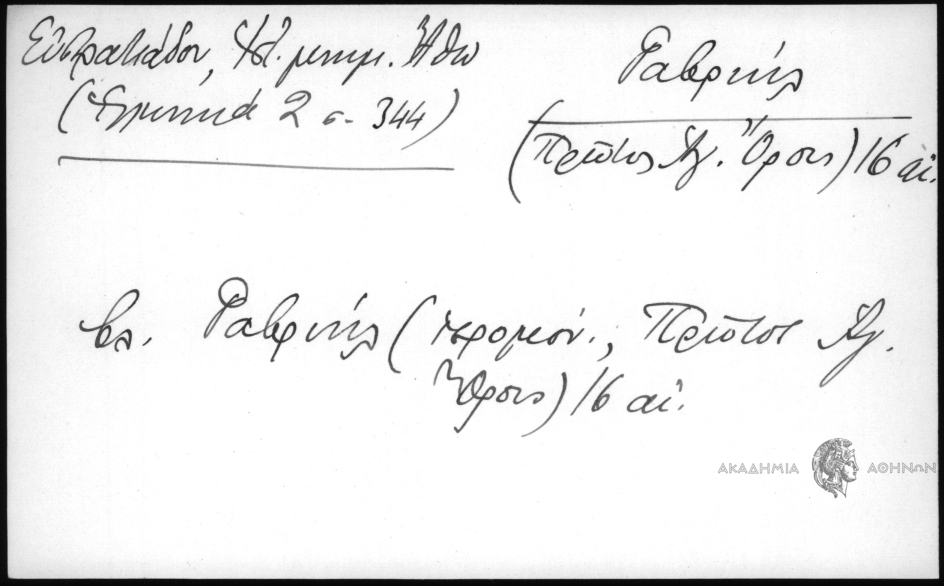 Εὐστρατιάδου, Ἱστ. μνημ. Ἄθω
(Ἑλληνικά 2 σ. 344)
Γαβριήλ
(Πρῶτος Ἁγ. Ὄρους) 16 αἰ.
βλ. Γαβριήλ (ἱερομόν., Πρῶτος Ἁγ.
Ὄρους) 16 αἰ.
ΑΚΑΔΗΜΙΑ ΑΘΗΝΩΝ